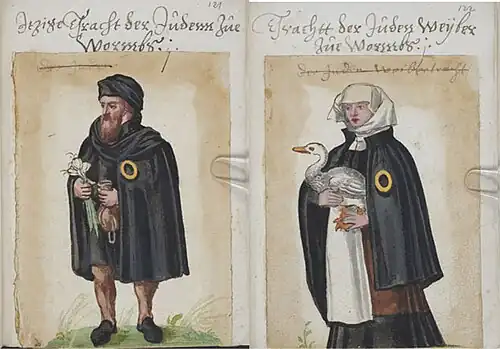 121
Jetzige Tracht der Juden Zue
Wormbs :.
122
Trachtt der Juden Weyber
Zue Wormbs :.